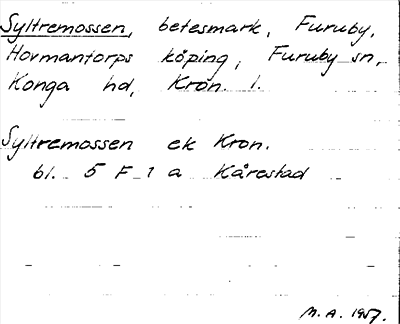 Syltremossen, betesmark, Furuby,
Hovmantorps köping, Furuby sn,
Konga hd, Kron. l.
Syltremossen ek Kron.
bl. 5 F 1 a Kårestad
M. A. 1957.